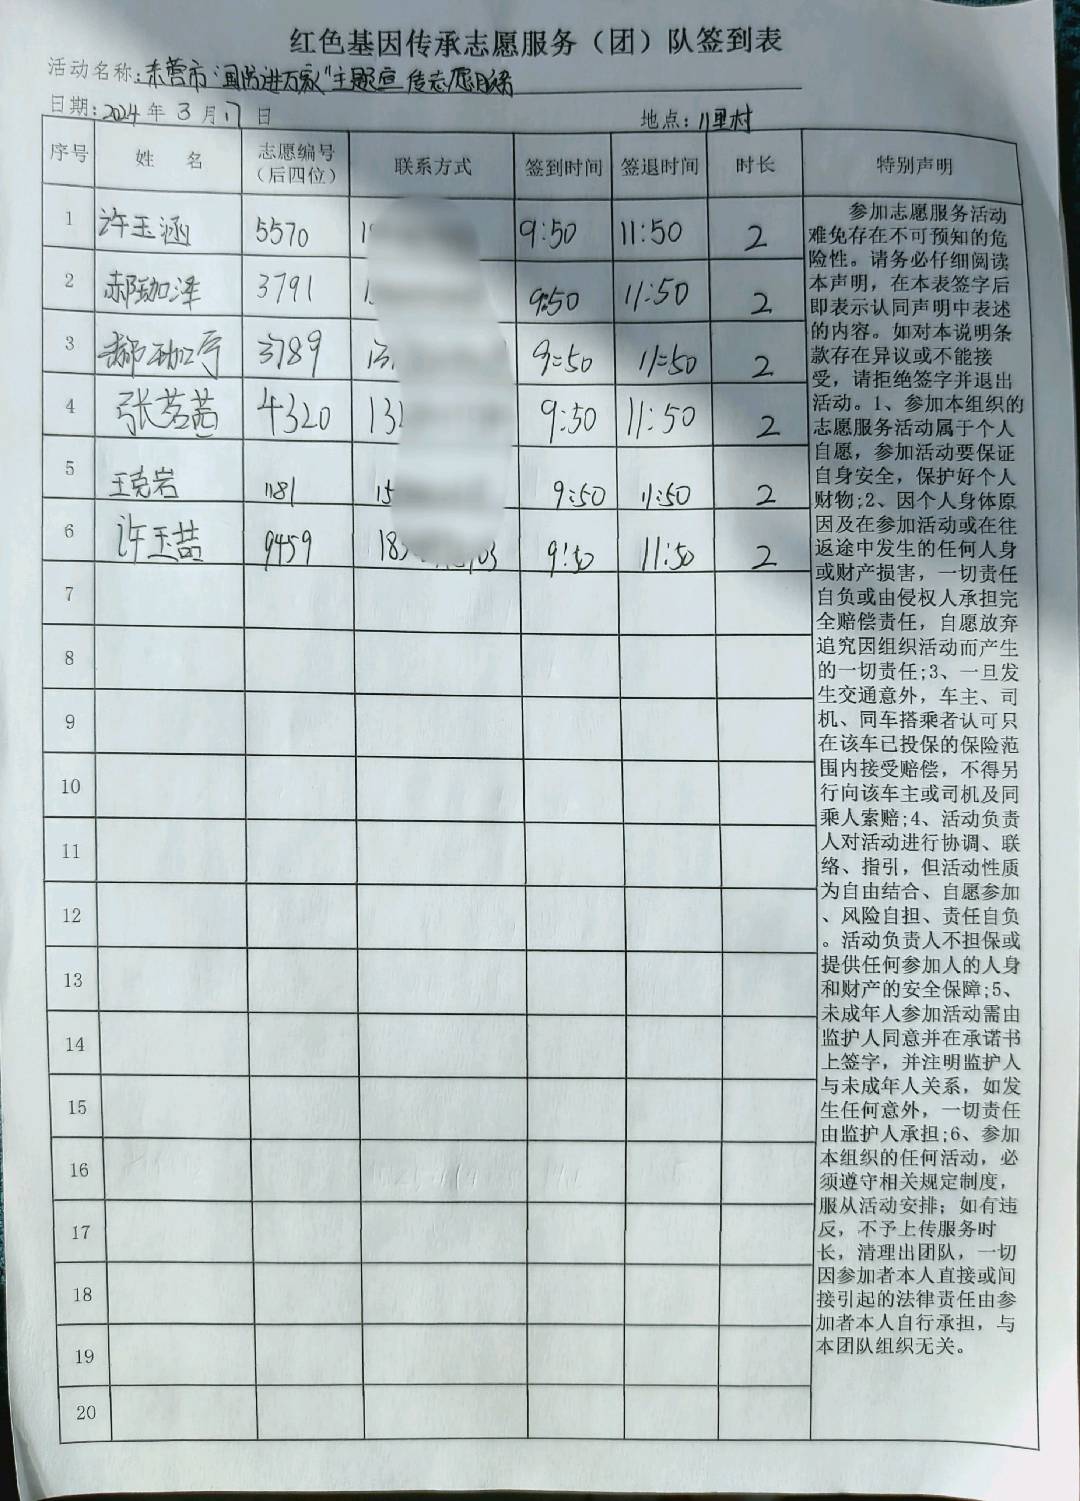 红色基因传承志愿服务（团）队签到表
活动名称:东营市"国防进万家"主题宣传志愿服务
日期:2024年3月17日 地点:八里村
序号 姓名 志愿编号（后四位） 联系方式 签到时间 签退时间 时长 特别声明
1 许玉涵 5570 9:50 11:50 2
2 郝珈泽 3791 9:50 11:50 2
3 郝珈宇 3789 9:50 11:50 2
4 张茗茜 4320 132 9:50 11:50 2
5 王克岩 1181 15 9:50 11:50 2
6 许玉喆 9459 183 9:50 11:50 2
7
8
9
10
11
12
13
14
15
16
17
18
19
20
参加志愿服务活动
难免存在不可预知的危
险性。请务必仔细阅读
本声明，在本表签字后
即表示认同声明中表述
的内容。如对本说明条
款存在异议或不能接
受，请拒绝签字并退出
活动。1、参加本组织的
志愿服务活动属于个人
自愿，参加活动要保证
自身安全，保护好个人
财物;2、因个人身体原
因及在参加活动或在往
返途中发生的任何人身
或财产损害，一切责任
自负或由侵权人承担完
全赔偿责任，自愿放弃
追究因组织活动而产生
的一切责任;3、一旦发
生交通意外，车主、司
机、同车搭乘者认可只
在该车已投保的保险范
围内接受赔偿，不得另
行向该车主或司机及同
乘人索赔;4、活动负责
人对活动进行协调、联
络、指引，但活动性质
为自由结合、自愿参加
、风险自担、责任自负
。活动负责人不担保或
提供任何参加人的人身
和财产的安全保障;5、
未成年人参加活动需由
监护人同意并在承诺书
上签字，并注明监护人
与未成年人关系，如发
生任何意外，一切责任
由监护人承担;6、参加
本组织的任何活动，必
须遵守相关规定制度，
服从活动安排；如有违
反，不予上传服务时
长，清理出团队，一切
因参加者本人直接或间
接引起的法律责任由参
加者本人自行承担，与
本团队组织无关。